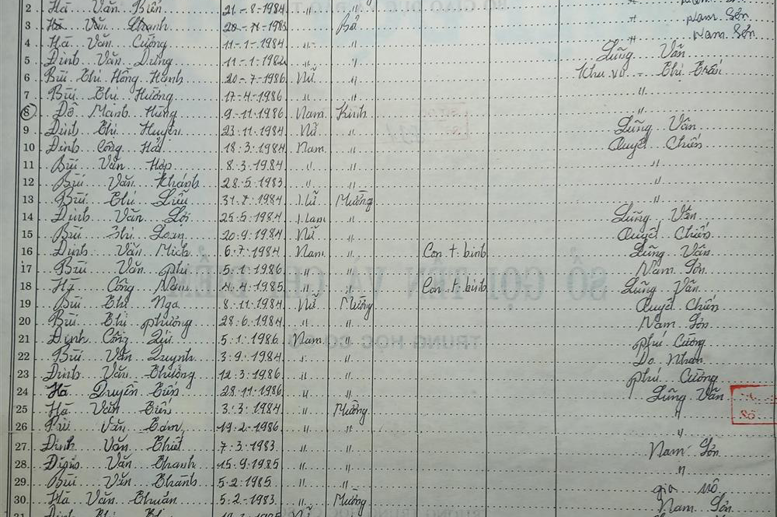 2 Hà Văn Biên 21-8-1984 " "
3 Hà Văn Thanh 20-11-1983 " Bá " Nam Sơn
4 Hà Văn Cường 11-1-1984 " " " Nam Sơn
5 Đinh Văn Dưng 11-1-1984 " " Lũng Vân
6 Bùi Thị Hồng Hạnh 20-7-1986 Nữ " Khu vô - Thị Trấn
7 Bùi Thị Hường 17-4-1986 " " "
8 Đỗ Mạnh Hùng 9-11-1986 Nam Kinh "
9 Đinh Thị Huyền 23-11-1984 Nữ " Lũng Vân
10 Đinh Công Hải 18-3-1984 Nam " Quyết Chiến
11 Bùi Văn Hợp 8-3-1984 " " "
12 Bùi Văn Khánh 28-5-1983 " " "
13 Bùi Thị Lưu 31-7-1984 Nữ Mường "
14 Đinh Văn Lợi 25-5-1984 Nam " Lũng Vân
15 Bùi Thị Loan 20-9-1984 Nữ " Quyết Chiến
16 Đinh Văn Mích 6-7-1984 Nam " Con t. binh Lũng Vân
17 Bùi Văn Phi 5-1-1986 " " Nam Sơn
18 Hà Công Năm 4-4-1985 " " Con t. binh Lũng Vân
19 Bùi Thị Nga 8-11-1984 Nữ Mường Quyết Chiến
20 Bùi Thị Phương 28-6-1984 " " Nam Sơn
21 Đinh Công Qúi 5-1-1986 Nam " Phú Cường
22 Bùi Văn Quynh 3-9-1984 " " Do Nhan
23 Đinh Văn Thưởng 12-3-1986 " " Phú Cường
24 Hà Duyên Tiến 28-11-1986 " " Lũng Vân
25 Hà Văn Tiến 3-3-1984 " Mường "
26 Bùi Văn Tám 19-2-1986 " " "
27 Đinh Văn Thiết 7-3-1983 " " Nam Sơn
28 Đinh Văn Thanh 15-9-1985 " " "
29 Bùi Văn Thành 5-2-1985 " " gia mô
30 Hà Văn Thuân 5-2-1983 " Mường Nam Sơn